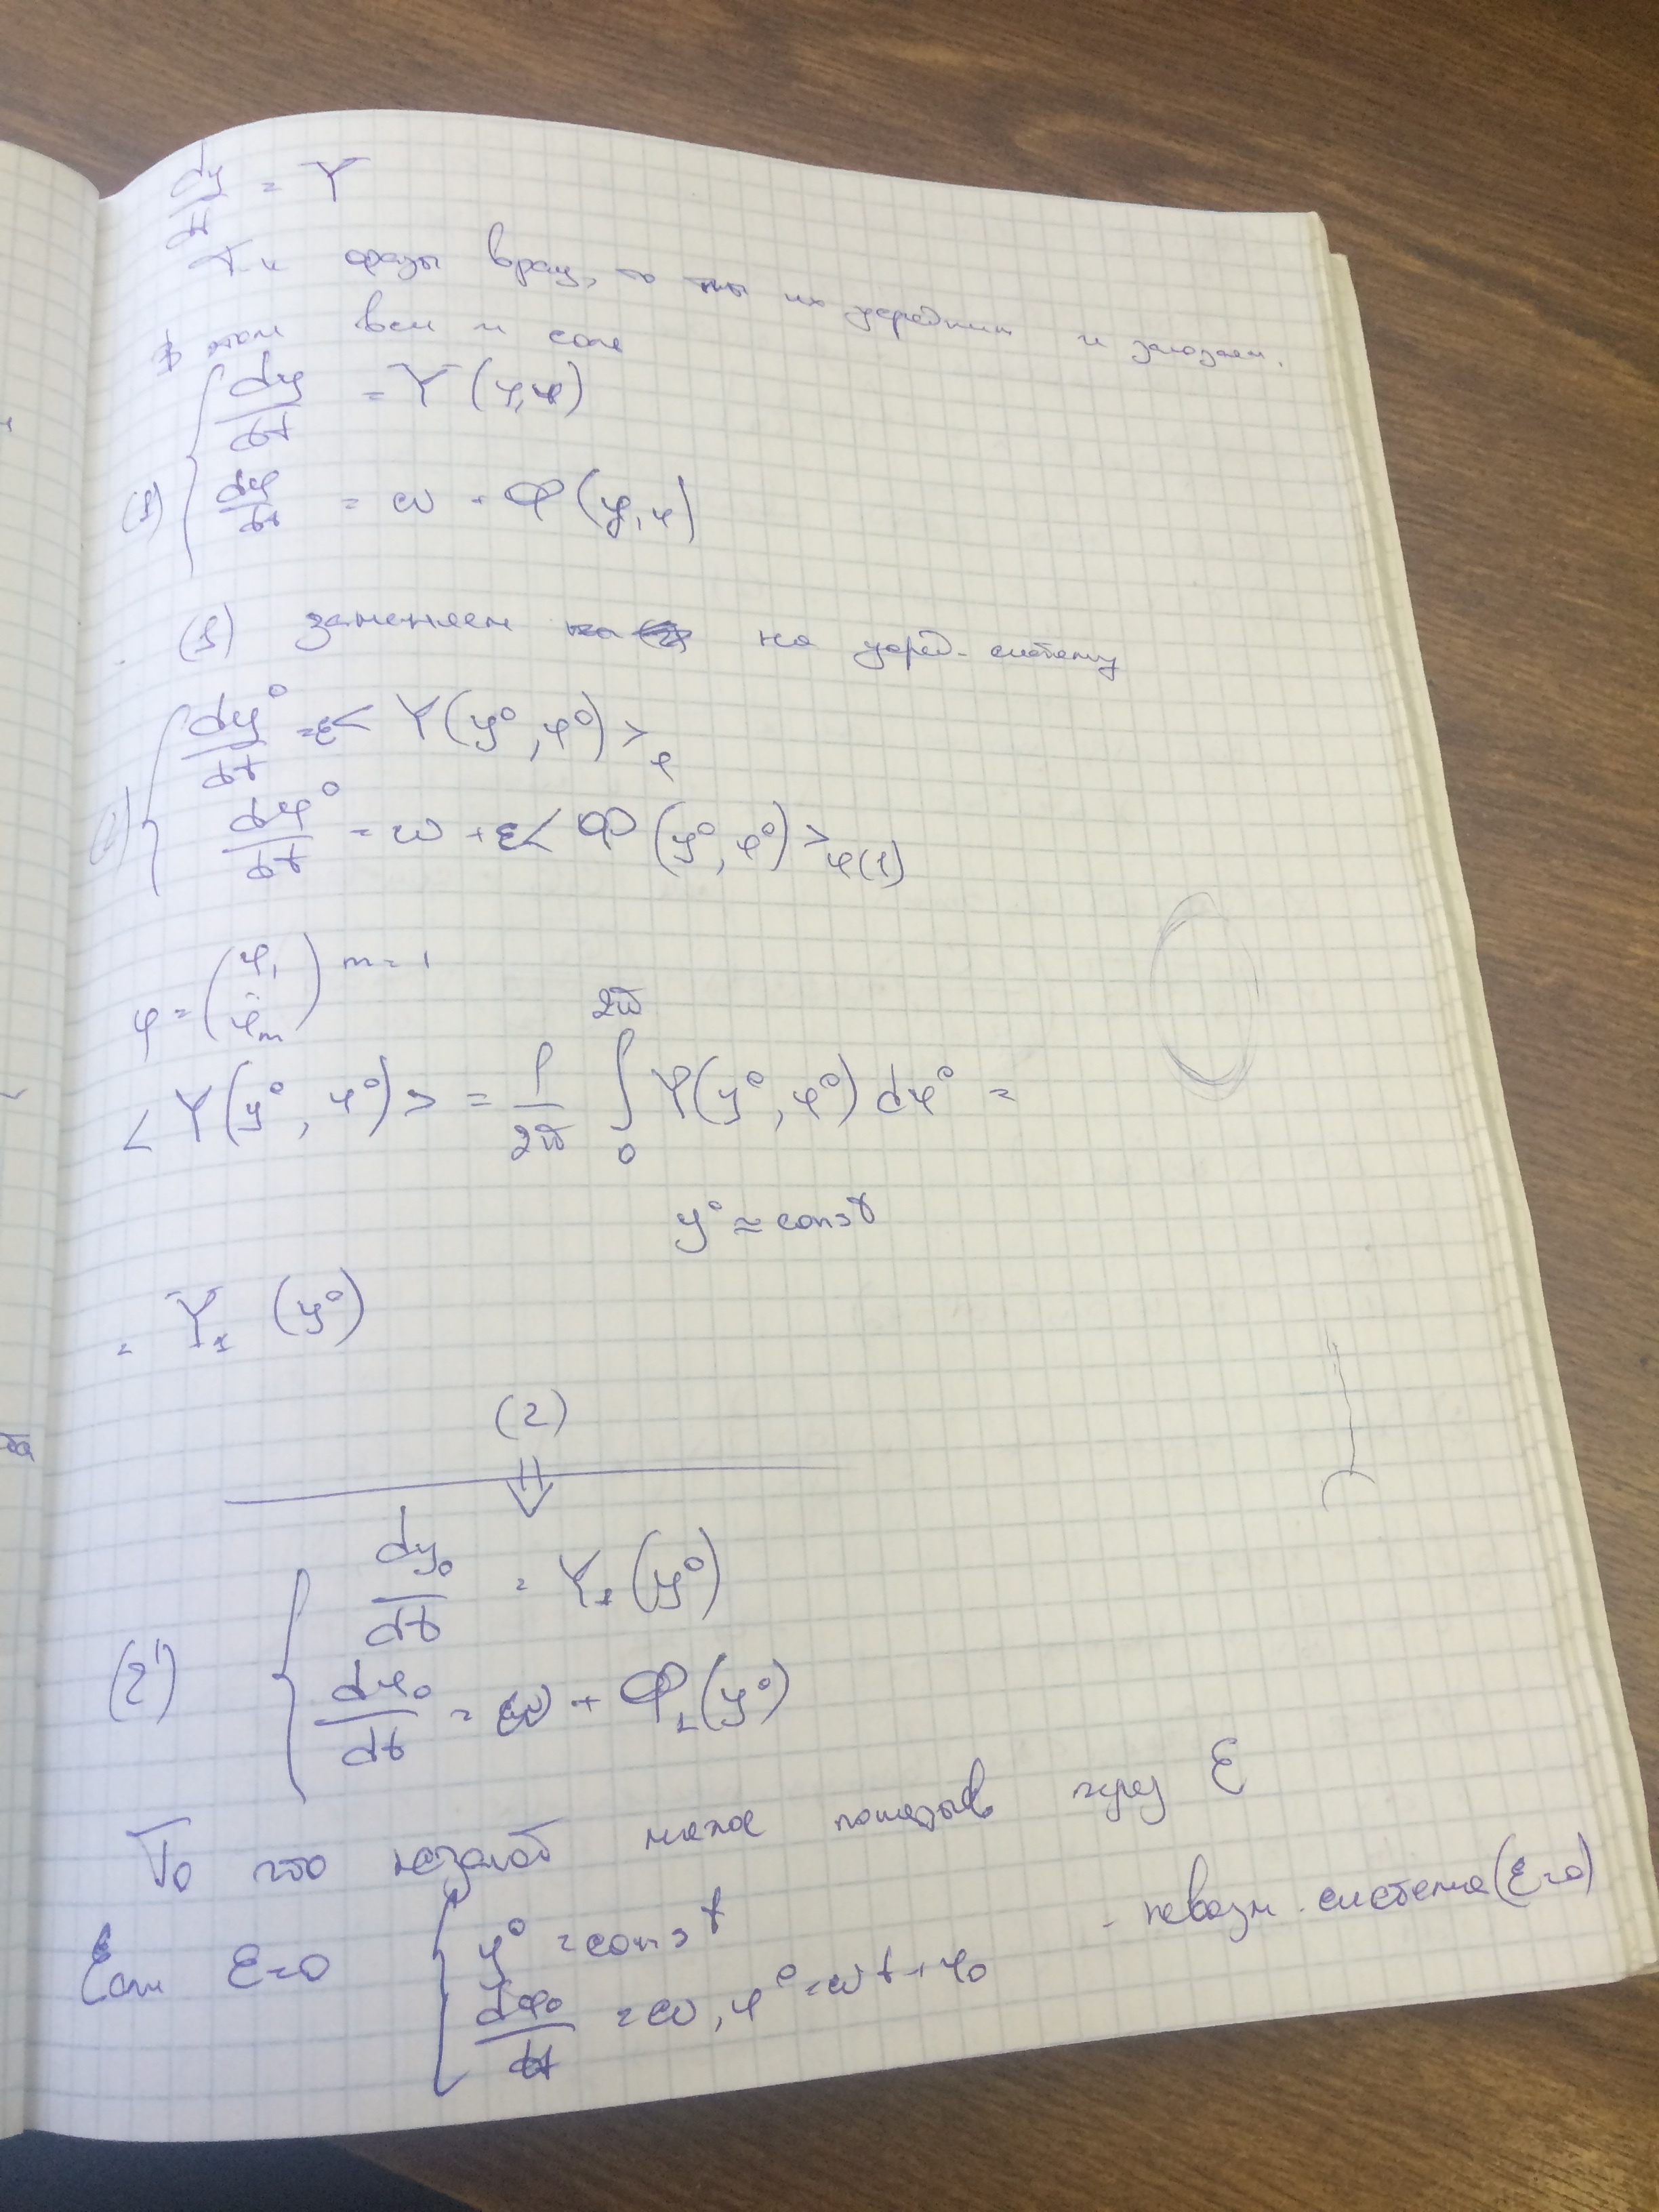 dy/dt = Y
Т.к фазы вращ, то мы их усредним и
dy/dt = Y(y,φ)
(1) dφ/dt = ω + Φ(y,φ)
(1) заменяем на усред. систему
dy⁰/dt = ε< Y(y⁰, φ⁰) >φ
(2) dφ⁰/dt = ω + ε< Φ(y⁰, φ⁰) >φ(1)
φ = (φ₁ ⋮ φm) m = 1
< Y(y⁰, φ⁰) > = 1/2π ∫₀^2π Y(y⁰, φ⁰) dφ⁰ =
y⁰ ≈ const
= Y₁ (y⁰)
(2)
⇓
dy₀/dt = Y₁(y⁰)
(2') dφ₀/dt = ω + Φ₁(y⁰)
То что малое показыв через ε
Если ε=0 y⁰ = const
dφ₀/dt = ω, φ⁰ = ωt + φ₀ - невозм. система (ε=0)